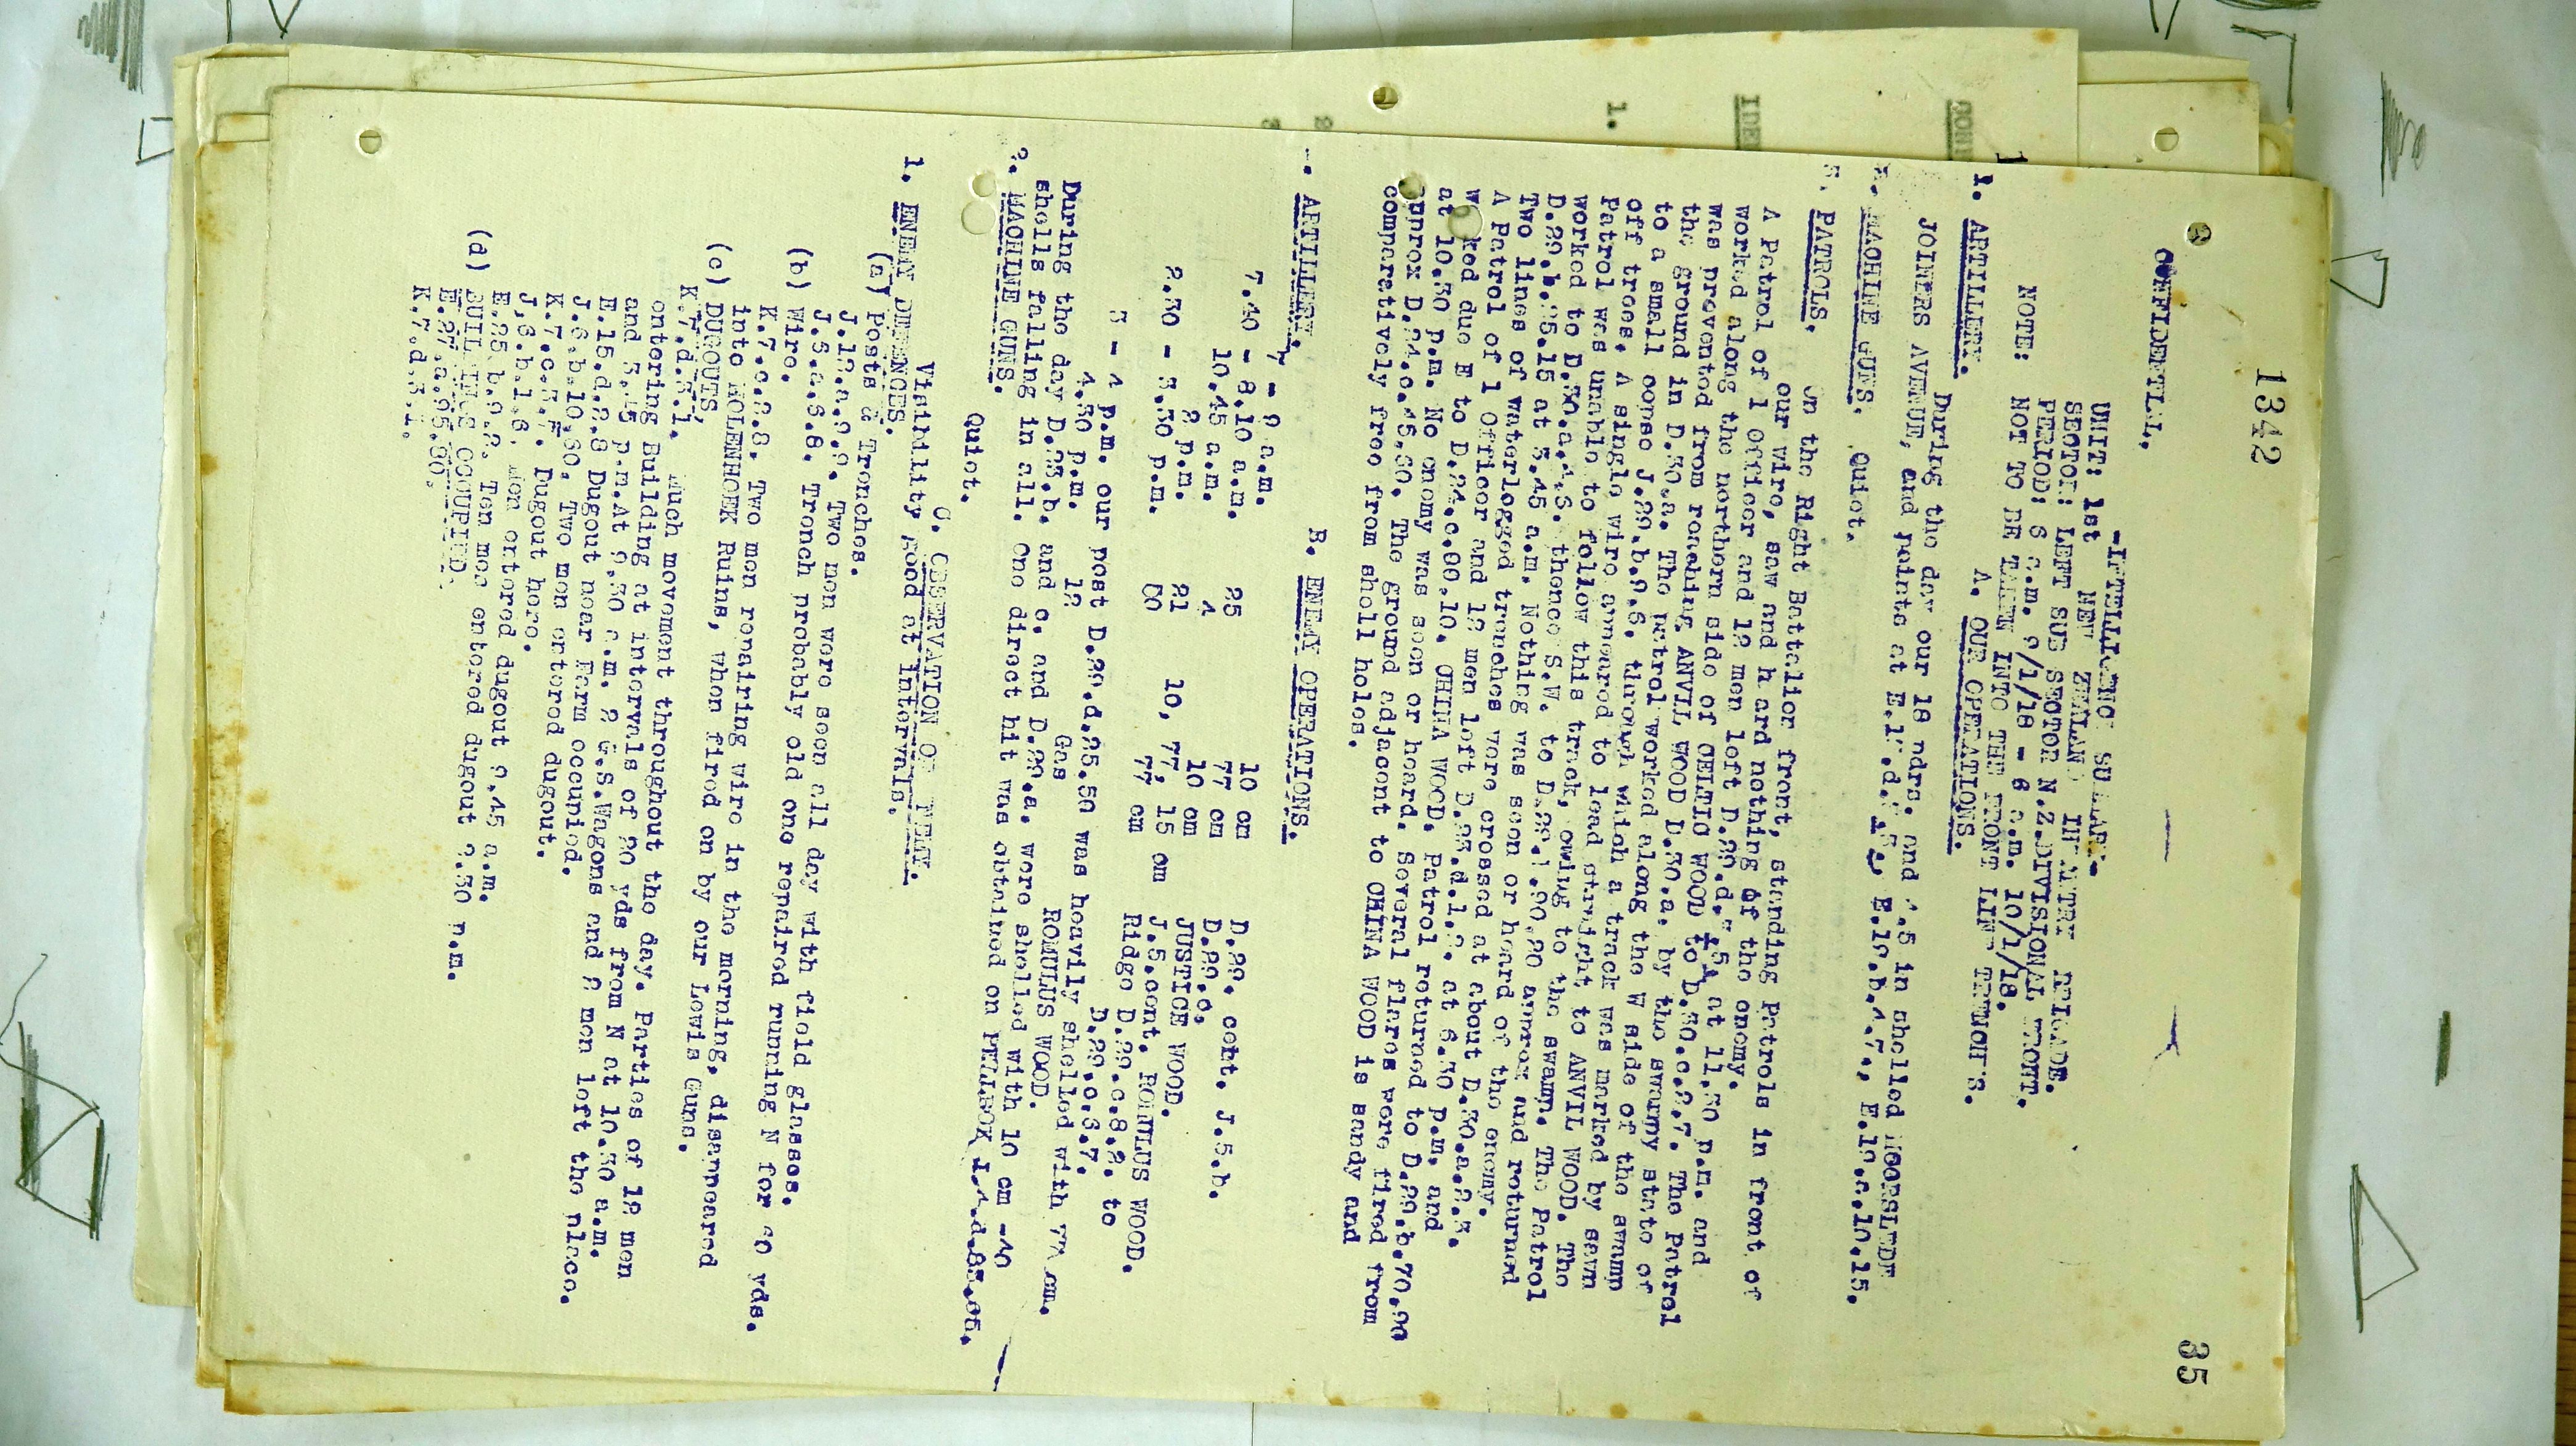 1342
35
CONFIDENTIAL.
-INTELLIGENCE SUMMARY-
UNIT: 1st NEW ZEALAND INFANTRY BRIGADE.
SECTOR: LEFT SUB SECTOR N.Z.DIVISIONAL FRONT.
PERIOD: 6 a.m. 9/1/18 - 6 a.m. 10/1/18.
NOTE: NOT TO BE TAKEN INTO THE FRONT LINE TRENCHES.
A. OUR OPERATIONS.
1. ARTILLERY.
During the day our 18 pdrs. and 4.5 in shelled MOORSLEDE
JOINERS AVENUE, and points at E.10.b.4.7., E.10.c.10.15.
MACHINE GUNS. Quiet.
PATROLS. On the Right Battalior front, standing Patrols in front of
our wire, saw and h ard nothing of the enemy.
A Patrol of 1 Officer and 12 men left D.29.d. at 11.30 p.m. and
worked along the northern side of CELTIC WOOD to D.30.c.2.7. The Patrol
was prevented from reaching ANVIL WOOD D.30.a. by the swampy state of
the ground in D.30.a. The patrol worked along the W side of the swamp
to a small copse J.29.b.9.6. through which a track was marked by sawn
off trees. A single wire appeared to lead straight to ANVIL WOOD. The
Patrol was unable to follow this track, owing to the swamp. The Patrol
worked to D.30.a.4.6. thence S.W. to D.29. .90.20 approx and returned
D.29.b.25.15 at 3.45 a.m. Nothing was seen or heard of the enemy.
Two lines of waterlogged trenches were crossed at about D.30.a.2.3.
A Patrol of 1 Officer and 12 men left D.23.d.1.2. at 6.30 p.m. and
worked due E to D.24.c.00.10. CHINA WOOD. Patrol returned to D.29.b.70.90
at 10.30 p.m. No enemy was seen or heard. Several flares were fired from
approx D.24.c.45.60. The ground adjacent to CHINA WOOD is sandy and
comparatively free from shell holes.
B. ENEMY OPERATIONS.
ARTILLERY.
7 - 9 a.m. 25 10 cm D.29. cent. J.5.b.
7.40 - 8.10 a.m. 4 77 cm D.29.c.
10.45 a.m. 21 10 cm JUSTICE WOOD.
2 p.m. 10, 77, 15 cm J.5.cent. ROMULUS WOOD.
2.30 - 3.30 p.m. 60 77 cm Ridge D.29.c.8.2. to
D.29.c.3.7.
3 - 4 p.m. our post D.29.d.25.50 was heavily shelled with 77 cm.
4.30 p.m. 12 Gas ROMULUS WOOD.
During the day D.23.b. and c. and D.29.a. were shelled with 10 cm -40
shells falling in all. One direct hit was obtained on PILLBOX
2. MACHINE GUNS. Quiet.
C. OBSERVATION OF ENEMY.
Visibility good at intervals.
1. ENEMY DEFENCES.
(a) Posts & Trenches.
J.12.a.9.2. Two men were seen all day with field glasses.
J.6.a.6.8. Trench probably old one repaired running N for 20 yds.
(b) Wire.
K.7.c.2.8. Two men repairing wire in the morning, disappeared
into MOLENHOEK Ruins, when fired on by our Lewis Guns.
(c) DUGOUTS.
K.7.d.3.1. Much movement throughout the day. Parties of 12 men
entering Building at intervals of 20 yds from N at 10.30 a.m.
and 3.45 p.m. At 9.30 a.m. 2 G.S.Wagons and 2 men left the place.
E.15.d.2.8 Dugout near Farm occupied.
J.6.b.10.60. Two men entered dugout.
K.7.c.3.7. Dugout here.
J.6.b.1.6. Men entered dugout 9.45 a.m.
E.25.b.2.2. Ten men entered dugout 2.30 p.m.
(d) BUILDINGS OCCUPIED.
E.27.a.95.80.
K.7.d.3.1.